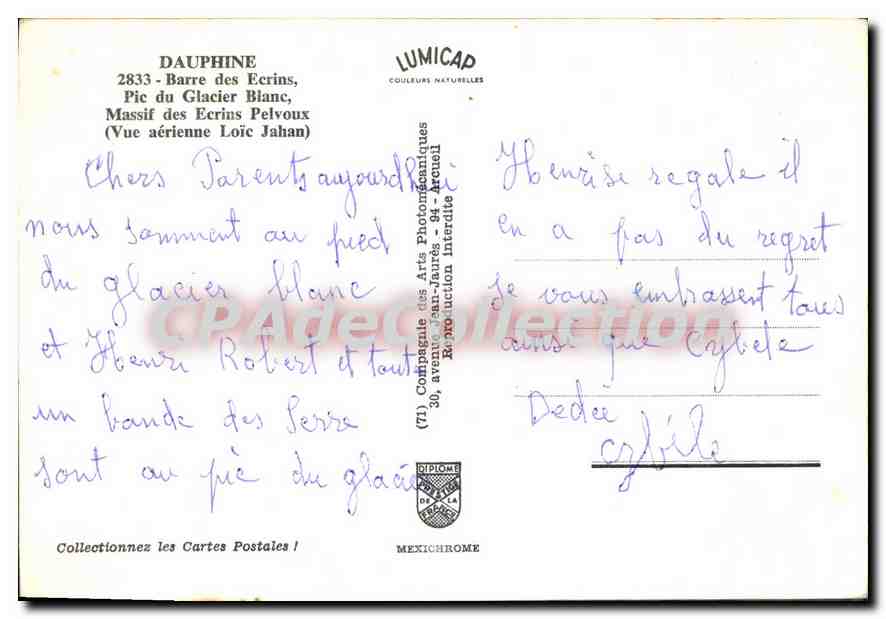 DAUPHINE
2833 - Barre des Ecrins,
Pic du Glacier Blanc,
Massif des Ecrins Pelvoux
(Vue aérienne Loïc Jahan)
LUMICAP
COULEURS NATURELLES
Chers Parents aujourd'hui
nous somment au pied
du glacier blanc
et Henri Robert et toute
un bande des Serre
sont au pic du glacier
(71) Compagnie des Arts Photomécaniques
30, avenue Jean-Jaurès - 94 - Arcueil
Reproduction interdite
Henri se regale il
en a pas du regret
Je vous embrassent tous
ainsi que Cybele
Dedée
Cybéle
CPAdeCollection
DIPLOME
PRESTIGE
DE LA
FRANCE
Collectionnez les Cartes Postales !
MEXICHROME